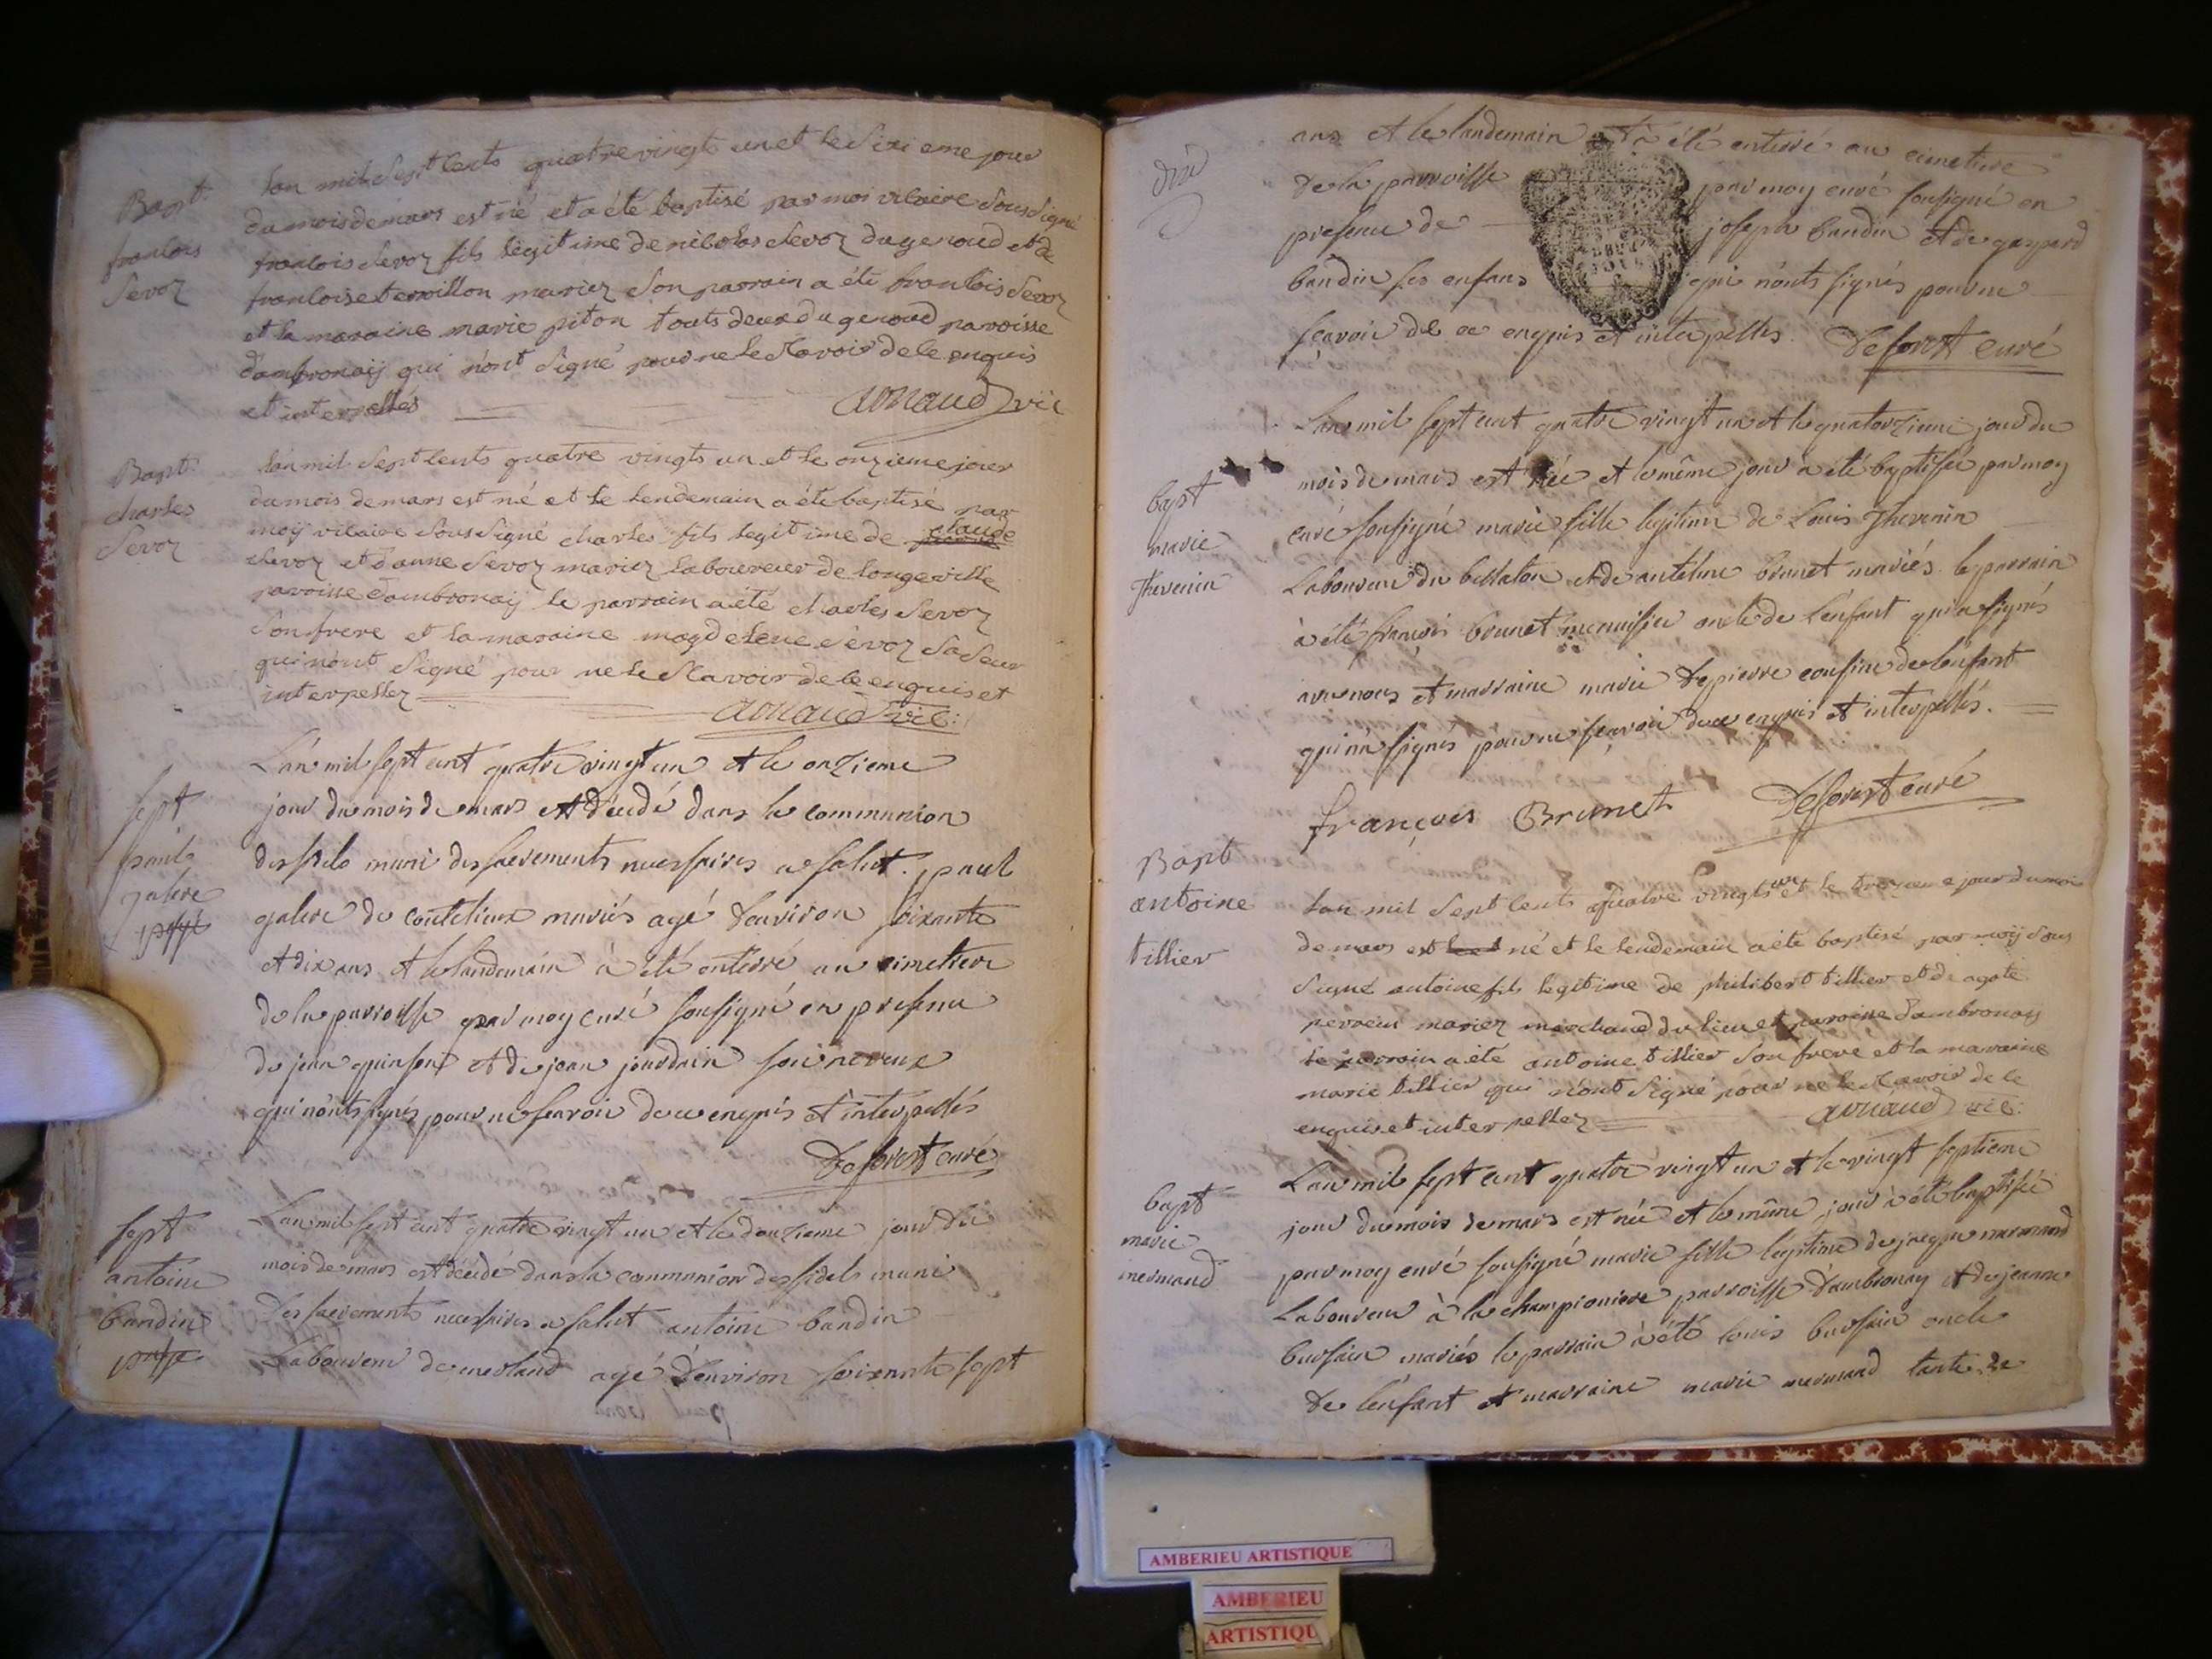 Bapt
francois
Sevoz
Lan mil Sept Cents quatre vingts un et le Sixieme jour
du mois de mars est né et a été baptisé par moi vicaire Sous Signé
francois Sevoz fils légitime de nicolas Sevoz du genoud et de
francoise terroillon mariez Son parrain a été francois Sevoz
et la maraine marie piton touts deux du genoud paroisse
d'ambronaÿ qui n'ont Signé pour ne le Scavoir de ce enquis
et interpellés arnaud vic
Bapt
charles
Sevoz
Lan mil Sept Cents quatre vingts un et le onzieme jour
du mois de mars est né et le lendemain a été baptisé par
moÿ vicaire Sous Signé charles fils legitime de claude
Sevoz et d'anne Sevoz mariez laboureur de longeville
paroisse d'ambronaÿ le parrain a été charles Sevoz
Son frere et la maraine magdeleine Sevoz Sa Seur
qui n'ont Signé pour ne le Scavoir de ce enquis et
interpellez
arnaud vic:
sept
paul
galere
L'an mil sept cent quatre vingt un et le onzieme
jour du mois de mars est décédé dans la communion
des fidels muni des sacrements necessaires a salut. paul
galere de coutelieux mariés agé d'environ soixante
et dix ans et le landemain à été enterré au cimetiere
de la parroisse par moy curé sousigné en presence
de jean quinson et de jean jourdain son neveux
qui n'onts signés pour ne scavoir de ce enquis et interpellés
Deforest curé
sept
antoine
baudin
L'an mil sept cent quatre vingt un et le douzieme jour du
mois de mars est décédé dans la communion des fidels muni
des sacrements necessaires a salut antoine baudin
Laboureur de merland agé d'environ soixante sept
dix
ans et le landemain à été enterré au cimetiere
de la parroisse par moy curé sousigné en
presence de joseph baudin et de gaspard
baudin ses enfans qui n'onts signés pour ne
sçavoir de ce enquis et interpellés. Deforest curé
bapt
marie
Thevenin
L'an mil sept cent quatre vingt un et le quatorzieme jour du
mois de mars est née et le même jour a été baptisée par moy
curé sousigné marie fille legitime de Louis Thevenin
Laboureur du bellaton et de antelme brunet mariés. le parrain
à été françois brunet menuisier oncle de l'enfant qui a signés
avec nous et marraine marie Depierre cousine de l'enfant
qui n'a signés pour ne sçavoir de ce enquis et interpellés.
françois Brunet Deforest curé
Bapt
antoine
tillier
Lan mil Sept Cents quatre vingts un et le treizieme jour du mois
de mars est né et le lendemain a été baptisé par moÿ Sous
Signé antoine fils legitime de philibert tillier et de agate
perreux mariez marchand du lieu et paroisse d'ambronaÿ
le parrain a été antoine tillier Son frere et la maraine
marie tillier qui n'ont Signé pour ne le Scavoir de ce
enquis et interpellez arnaud vic:
bapt
marie
mermand
L'an mil sept cent quatre vingt un et le vingt septieme
jour du mois de mars est née et le même jour à été baptisée
par moy curé sousigné marie fille legitime de jacque mermand
Laboureur à la championiere parroisse d'ambronay et de jeanne
bursain mariés le parrain à été louis bursain oncle
de l'enfant et marraine marie mermand tante de
AMBERIEU ARTISTIQUE
AMBERIEU
ARTISTIQU